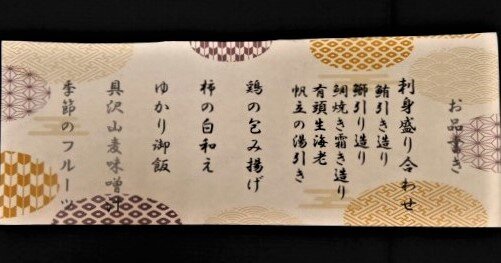 お品書き
刺身盛り合わせ
鮪引き造り
鰤引り造り
鯛焼き霜き造り
有頭生海老
帆立の湯引き
鶏の包み揚げ
柿の白和え
ゆかり御飯
具沢山麦味噌汁
季節のフルーツ